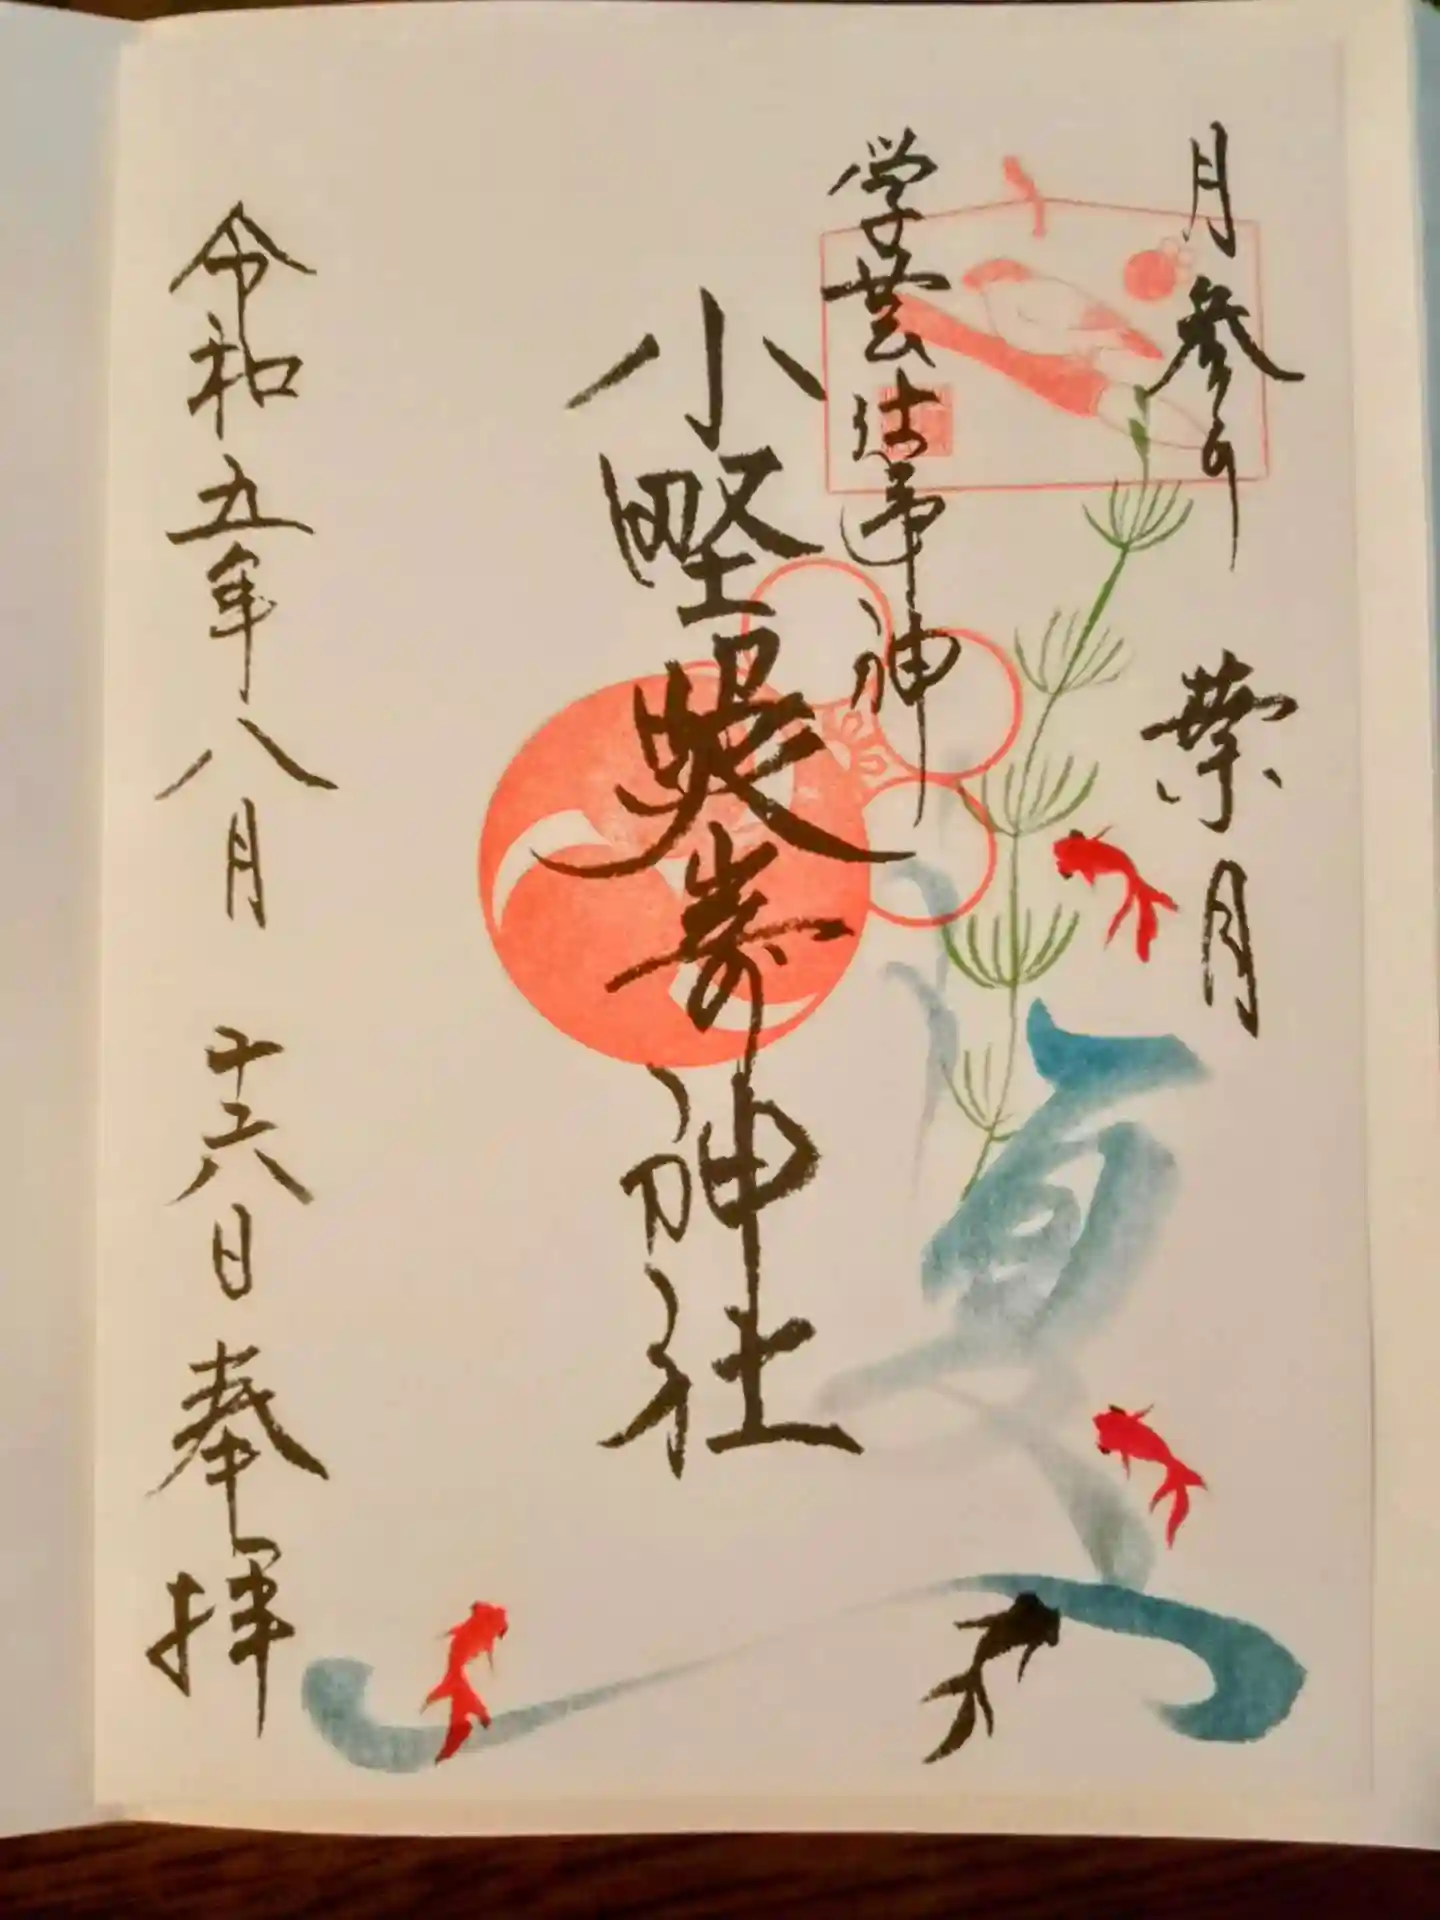 月参り 葉月
学芸仕事神
小野照崎神社
令和五年八月十六日奉拝
夏